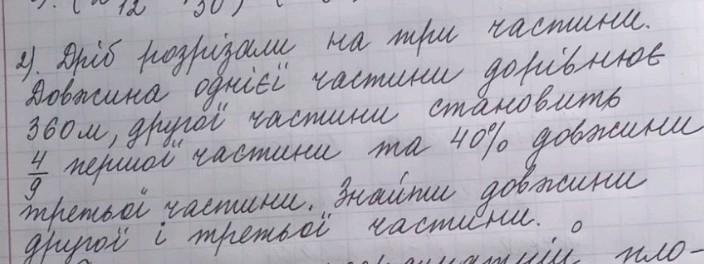 12 30
2). Дріб розрізали на три частини.
Довжина однієї частини дорівнює
360 м, другої частини становить
4/9 першої частини та 40% довжини
третьої частини. Знайти довжини
другої і третьої частини.
пло-